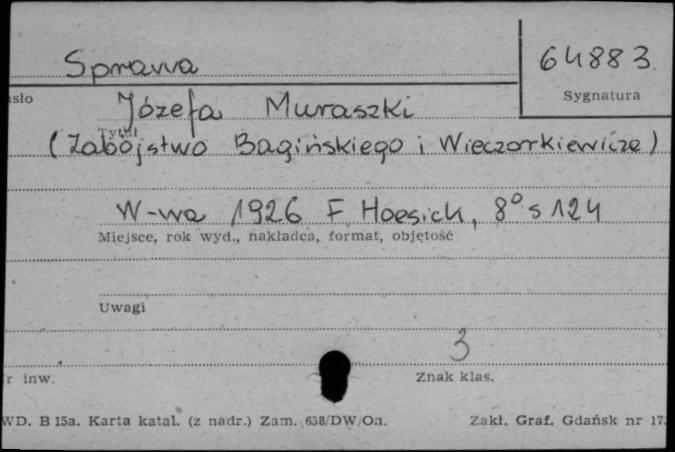 Sprawa
64883.
Sygnatura
sło
Józefa Muraszki
Tytuł
(Zabójstwo Bagińskiego i Wieczorkiewicza)
W-wa 1926 F. Hoesick, 8° s 124
Miejsce, rok wyd., nakładca, format, objętość
Uwagi
3
r inw.
Znak klas.
WD. B 15a. Karta katal. (z nadr.) Zam. 658/DW/On.
Zakł. Graf. Gdańsk nr 17